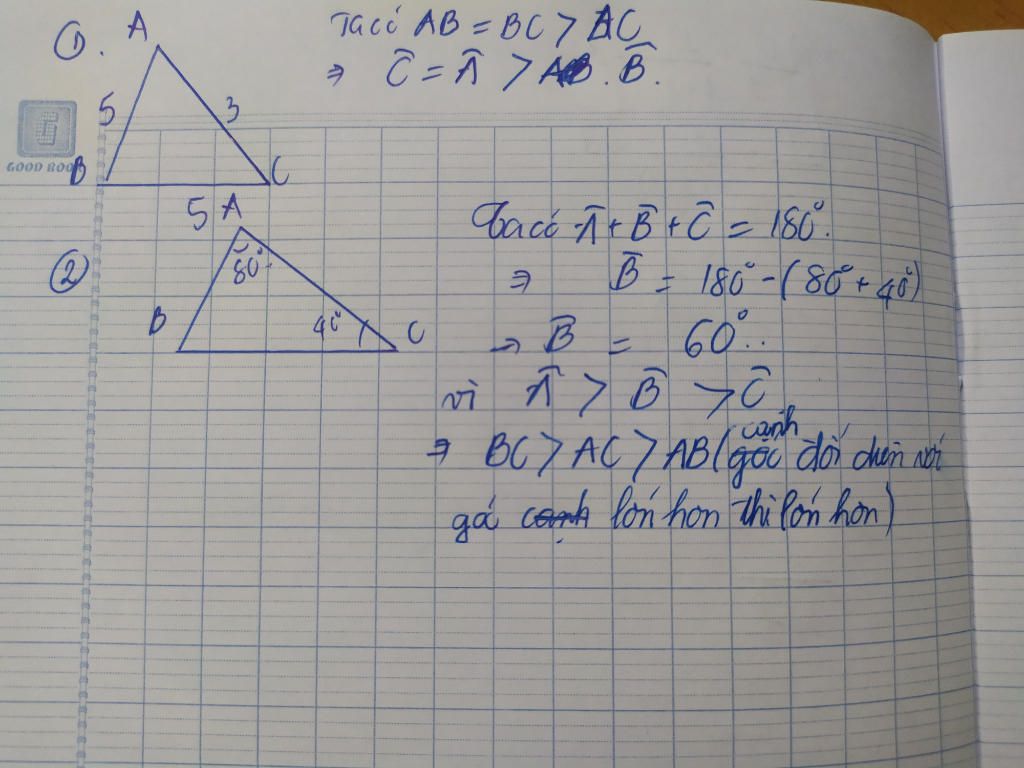 ①. A
5
3
B
C
5
Ta có AB = BC > AC
⇒ Ĉ = Â > B̂.
GOOD BOOK
② A
80°
B
40°
C
Ta có Â + B̂ + Ĉ = 180°.
⇒ B̂ = 180° - (80° + 40°)
→ B̂ = 60°..
vì Â > B̂ > Ĉ
⇒ BC > AC > AB (cạnh đối diện với
gó lớn hơn thì lớn hơn)